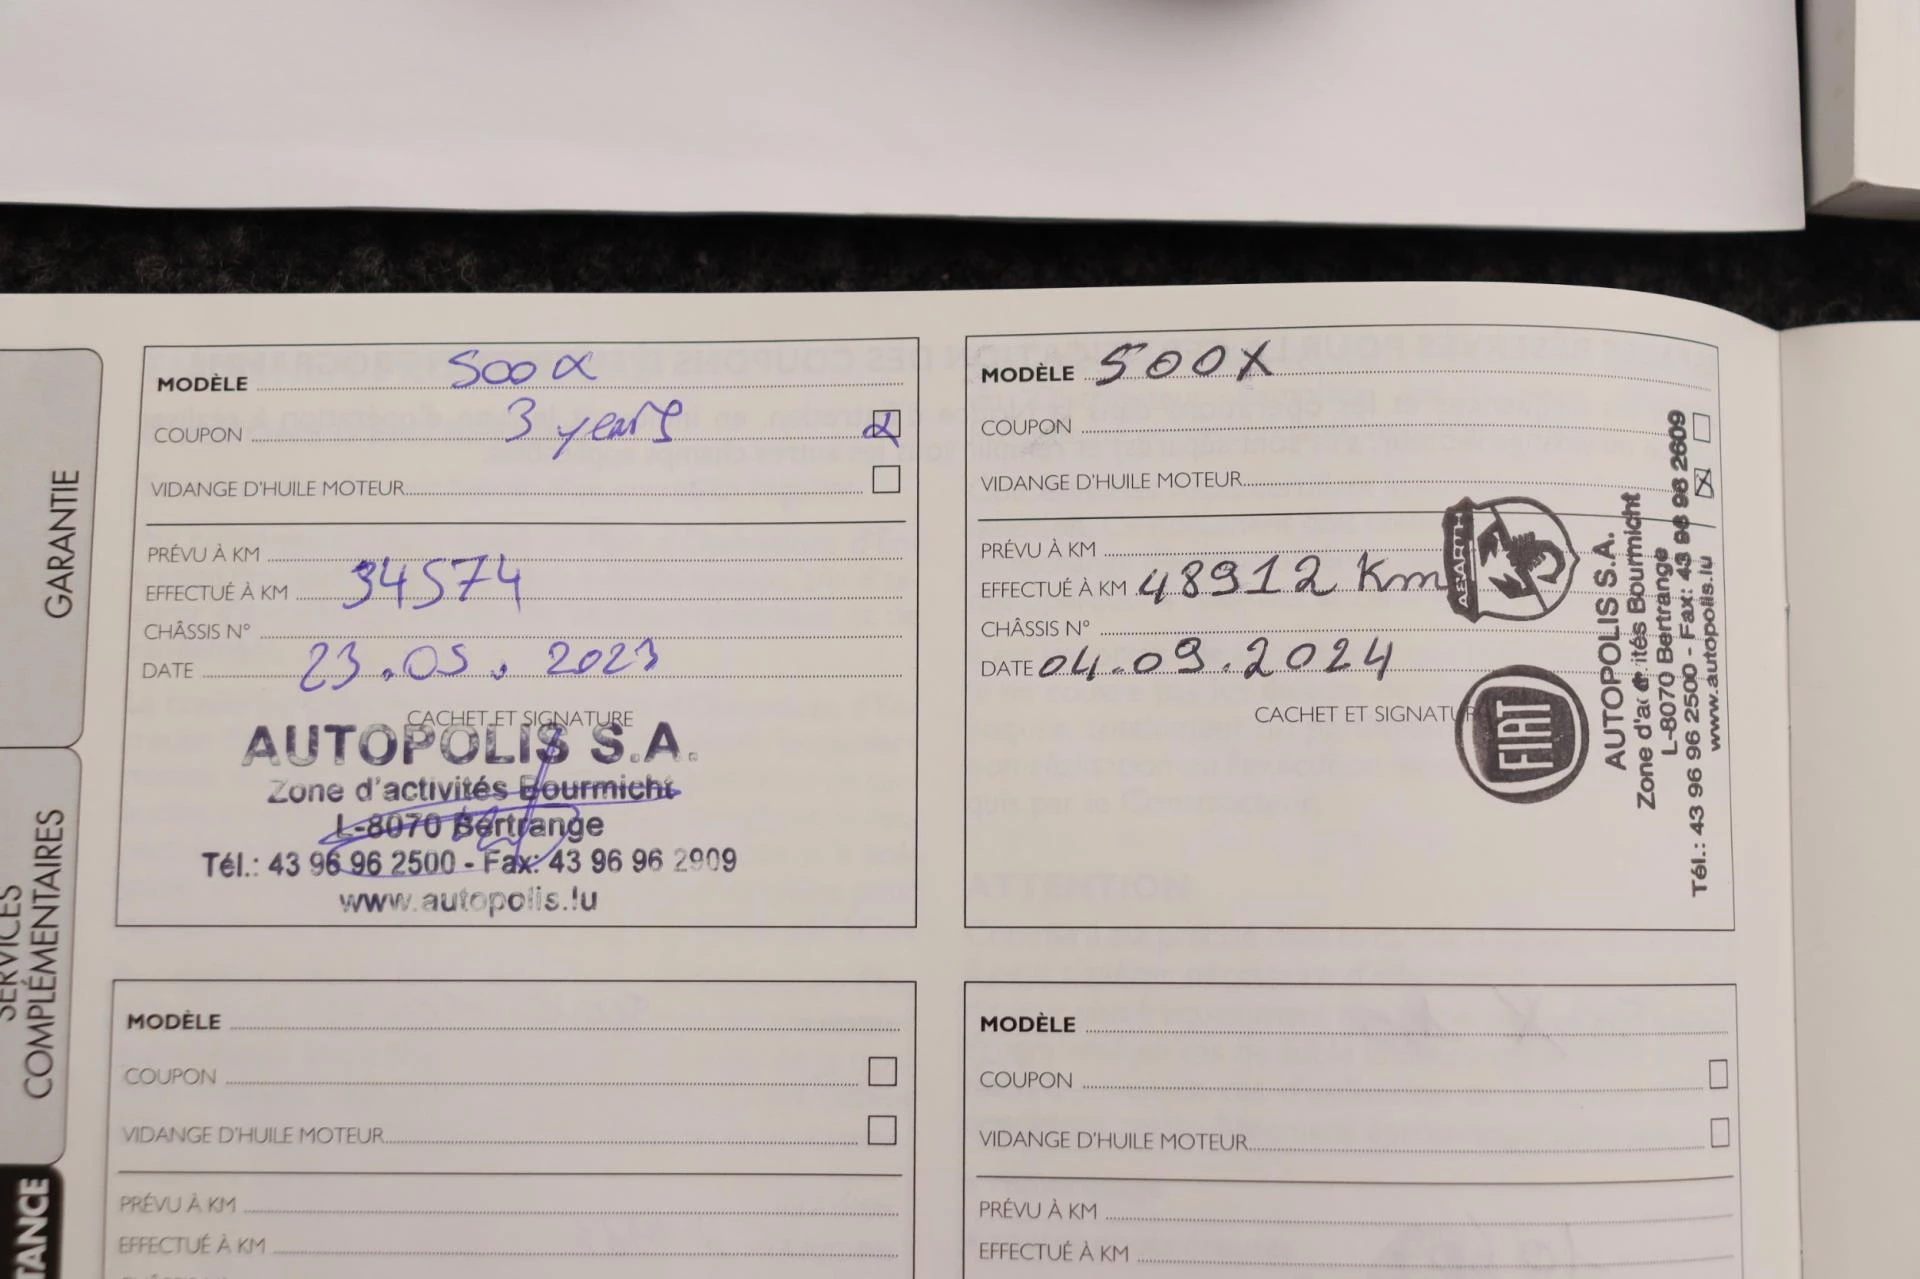 GARANTIE
SERVICES
COMPLÉMENTAIRES
TANCE
MODÈLE 500X
COUPON 3 years
VIDANGE D'HUILE MOTEUR
PRÉVU À KM
EFFECTUÉ À KM 34574
CHÂSSIS N°
DATE 23.05.2023
CACHET ET SIGNATURE
AUTOPOLIS S.A.
Zone d'activités Bourmicht
L-8070 Bertrange
Tél.: 43 96 96 2500 - Fax: 43 96 96 2909
www.autopolis.lu
MODÈLE 500X
COUPON
VIDANGE D'HUILE MOTEUR X
PRÉVU À KM
EFFECTUÉ À KM 48912 Km
CHÂSSIS N°
DATE 04.09.2024
CACHET ET SIGNATUR
ABARTH
FIAT
AUTOPOLIS S.A.
Zone d'activités Bourmicht
L-8070 Bertrange
Tél.: 43 96 96 2500 - Fax: 43 96 96 2609
www.autopolis.lu
MODÈLE
COUPON
VIDANGE D'HUILE MOTEUR
PRÉVU À KM
EFFECTUÉ À KM
MODÈLE
COUPON
VIDANGE D'HUILE MOTEUR
PRÉVU À KM
EFFECTUÉ À KM